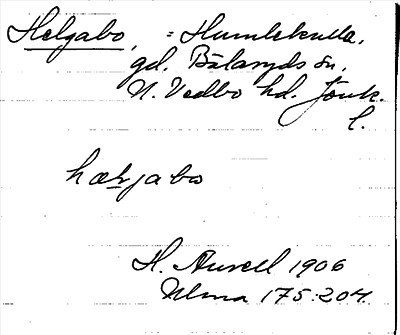 Helgabo, = Humlekulla,
gd. Bälaryds sn.
N. Vedbo hd. Jönk.
l.
hælgabo
H. Aurell 1906
Ulma 175:204.